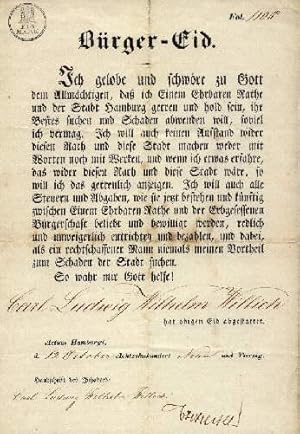 EIN MARK
Fol.
Bürger-Eid.
Ich gelobe und schwöre zu Gott
dem Allmächtigen, daß ich Einem Ehrbaren Rathe
und der Stadt Hamburg getreu und hold sein, ihr
Bestes suchen und Schaden abwenden will, soviel
ich vermag. Ich will auch keinen Aufstand wider
diesen Rath und diese Stadt machen weder mit
Worten noch mit Werken, und wenn ich etwas erfahre,
das wider diesen Rath und diese Stadt wäre, so
will ich das getreulich anzeigen. Ich will auch alle
Steuern und Abgaben, wie sie jetzt bestehen und künftig
zwischen Einem Ehrbaren Rathe und der Erbgesessenen
Bürgerschaft beliebt und bewilligt werden, redlich
und unweigerlich entrichten und bezahlen, und dabei,
als ein rechtschaffener Mann niemals meinen Vortheil
zum Schaden der Stadt suchen.
So wahr mir Gott helfe!
Carl Ludwig Wilhelm Willich
hat obigen Eid abgestattet.
Actum Hamburgi,
d. 12 October Achtzehnhundert Neun und Vierzig.
Handschrift des Inhabers:
Carl Ludwig Wilhelm Willich